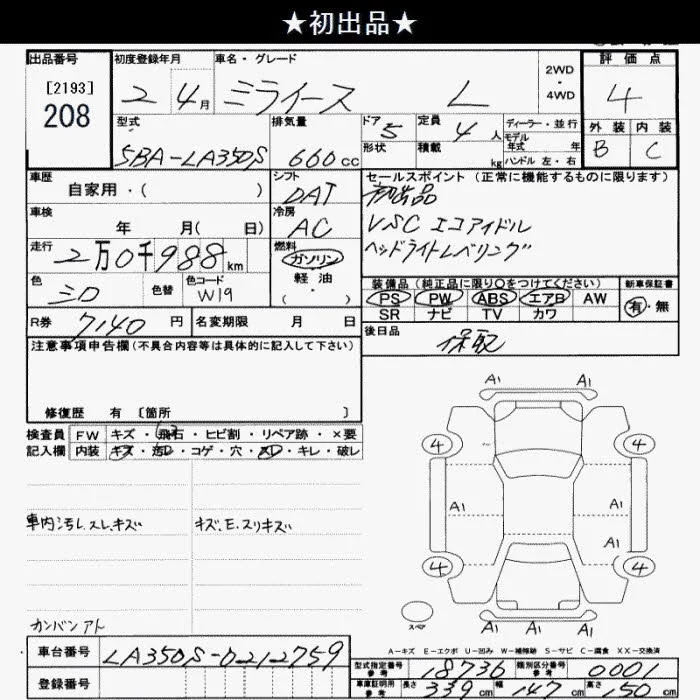 ★初出品★
出品番号
[2193]
208
初度登録年月
2 4月
車名・グレード
ミライース L
2WD
・
4WD
評価点
4
外装 内装
B C
型式
5BA-LA350S
排気量
660cc
ドア 5
形状
定員 4人
積載 kg
ディーラー・並行
モデル
年式 年
ハンドル 左・右
車歴
自家用・( )
シフト
DAT
車検
年 月( 日)
冷房
AC
走行
2万0千988km
燃料
ガソリン
軽油
( )
色
シロ
色替
色コード
W19
R券 7140円
名変期限 月 日
セールスポイント(正常に機能するものに限ります)
初出品
VSC エコアイドル
ヘッドライトレベリング
装備品(純正品に限り○をつけてください)
PS PW ABS エアB AW
SR ナビ TV カワ
新車保証書
有・無
後日品
保取
注意事項申告欄(不具合内容等は具体的に記入して下さい)
修復歴 有 〔箇所 〕
検査員
記入欄
FW キズ・飛石・ヒビ割・リペア跡・×要
内装 キズ・汚レ・コゲ・穴・スレ・キレ・破レ
車内汚レ.スレ.キズ
キズ.E.スリキズ
カンバンアト
A1 A1
4 4
A1 A1
A1
4 4
A1 A1 A1
スペア
A-キズ E-エクボ U-凹み W-補修跡 S-サビ C-腐食 XX-交換済
車台番号 LA350S-0212759
登録番号
型式指定番号
参考
18736
類別区分番号
参考
0001
車庫証明用
参考
長さ 339cm 幅 147cm 高さ 150cm